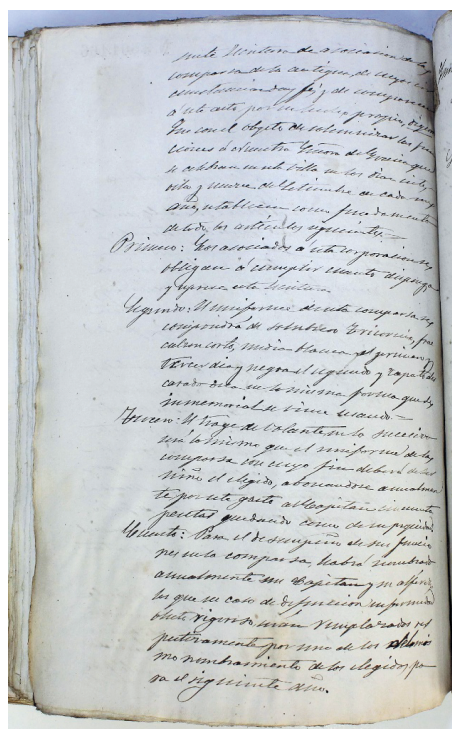 en esta Escritura de asociacion de la
comparsa de la antigua, de cuyo
conocimiento doy fé; y de comparecer
á este acto por su propio, dijeron
Que con el objeto de solemnizar las fun
ciones á Nuestra Señora de Gracia que
se celebran en esta Villa en los dias siete,
ocho y nueve de Setiembre de cada
año, establecen como fundamento
de todo los artículos siguientes.=
Primero: Los asociados á esta corporacion se
obligan á cumplir cuanto disponga
y exprese esta Escritura.
Segundo: El uniforme de esta comparsa se
compondrá de sombrero tricornio, frac
calzon corto, media blanca el primero y
tercer dia y negra el segundo y zapato des
carado ó sea en la misma forma que de
inmemorial se viene usando.=
Tercero: El trage de Volante en lo sucesivo
será lo mismo que el uniforme de la
comparsa con cuyo fin deberá ser
niño el elegido, abonandose anualmen
te por este gasto al Capitan cincuenta
pesetas quedando como de su propiedad.
Cuarto: Para el desempeño de sus funcio
nes en la comparsa, habrá nombrado
anualmente un Capitan y un alferez
los que en caso de defuncion, enfermedad
ó luto rigoroso, seran remplazados res
pectivamente por uno de los
mo nombramiento de los elegidos pa
ra el siguiente año.